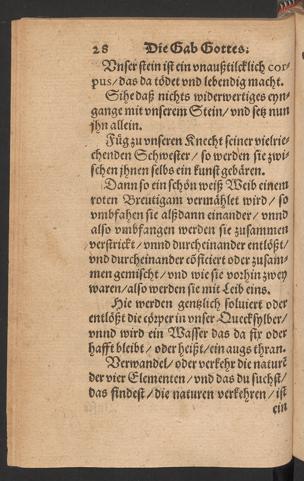 28 Die Gab Gottes:
Vnser stein ist ein vnaußtilcklich cor-
pus / das da tödet vnd lebendig macht.
Sihe daß nichts widerwertiges eyn-
gange mit vnserem Stein / vnd setz nun
jhn allein.
Füg zu vnseren Knecht seiner vielrie-
chenden Schwester / so werden sie zwi-
schen jhnen selbs ein kunst gebären.
Dann so ein schön weiß Weib einem
roten Breutigam vermählet wird / so
vmbfahen sie alßdann einander / vnnd
also vmbfangen werden sie zusammen
verstrickt / vnnd durcheinander entlößt /
vnd durcheinander cõficiert oder zusam-
men gemischt / vnd wie sie vorhin zwey
waren / also werden sie mit Leib eins.
Hie werden gentzlich soluiert oder
entlößt die cörper in vnser Quecksylber /
vnnd wird ein Wasser das da fix oder
hafft bleibt / oder heißt / ein augs thran.
Verwandel / oder verkehr die naturẽ
der vier Elementen / vnd das du suchst /
das findest / die naturen verkehren / ist
ein